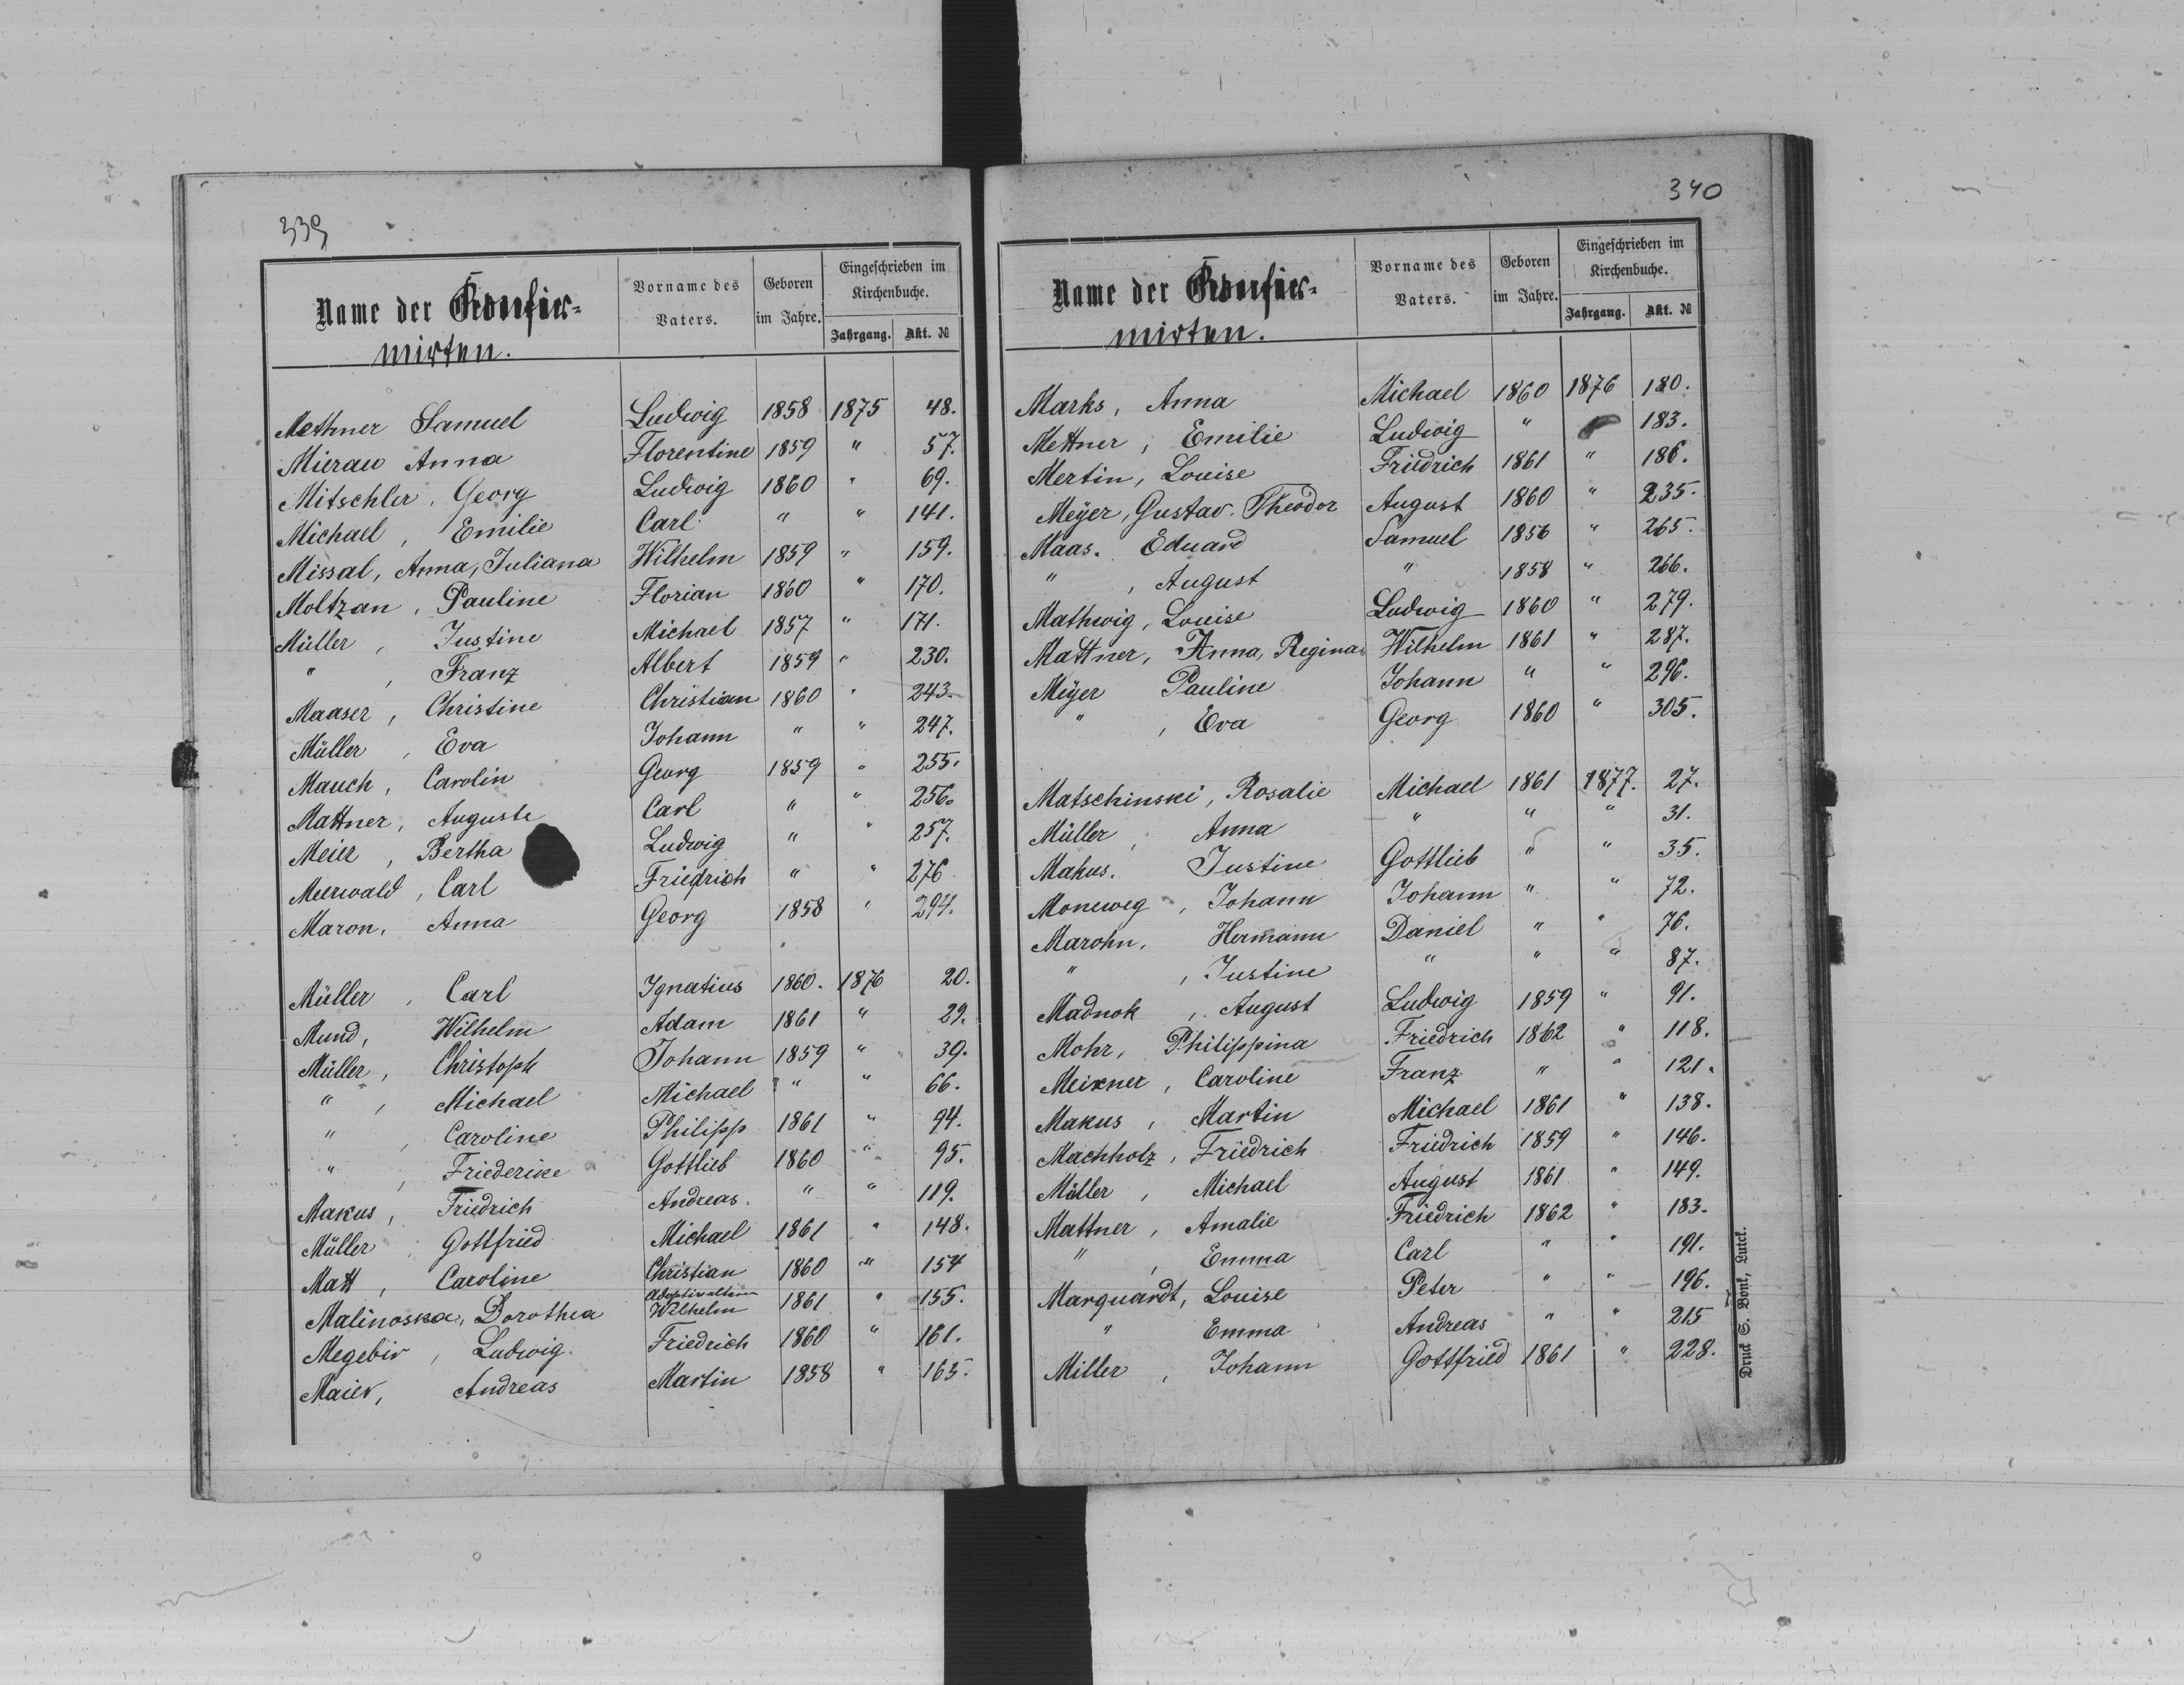 339
Name der Konfir-
mirten.
Vorname des Vaters.
Geboren im Jahre.
Eingeschrieben im Kirchenbuche.
Jahrgang. Akt. №
Methner Samuel Ludwig 1858 1875 48.
Mierau Anna Florentine 1859 " 57.
Mitschler, Georg Ludwig 1860 " 69.
Michael, Emilie Carl " " 141.
Missal, Anna, Juliana Wilhelm 1859 " 159.
Moltzan, Pauline Florian 1860 " 170.
Müller, Justine Michael 1857 " 171.
" , Franz Albert 1859 " 230.
Maaser, Christine Christian 1860 " 243.
Müller, Eva Johann " " 247.
Mauch, Carolin Georg 1859 " 255.
Mattner, Auguste Carl " " 256.
Meier, Bertha Ludwig " " 257.
Meerwald, Carl Friedrich " " 276
Maron, Anna Georg 1858 " 294.
Müller, Carl Ignatius 1860. 1876 20.
Mund, Wilhelm Adam 1861 " 29.
Müller, Christoph Johann 1859 " 39.
" , Michael Michael " " 66.
" , Caroline Philipp 1861 " 94.
" , Friederike Gottlieb 1860 " 95.
Makus, Friedrich Andreas. " " 119.
Müller, Gottfried Michael 1861 " 148.
Matt, Caroline Christian 1860 " 154
Malinoska, Dorothea Adoptivaltern Wilhelm 1861 " 155.
Megebir, Ludwig Friedrich 1860 " 161.
Maier, Andreas Martin 1858 " 165.
340
Name der Konfir-
mirten.
Vorname des Vaters.
Geboren im Jahre.
Eingeschrieben im Kirchenbuche.
Jahrgang. Akt. №
Marks, Anna Michael 1860 1876 180.
Mettner, Emilie Ludwig " 183.
Mertin, Louise Friedrich 1861 " 186.
Meÿer, Gustav. Theodor August 1860 " 235.
Maas. Eduard Samuel 1856 " 265.
" , August " 1858 " 266.
Mathwig, Louise Ludwig 1860 " 279.
Mattner, Anna, Regina Wilhelm 1861 " 287.
Meÿer Pauline Johann " " 296.
" , Eva Georg 1860 " 305.
Matschinski, Rosalie Michael 1861 1877. 27.
Müller, Anna " " " 31.
Makus. Justine Gottlieb " " 35.
Moneweg, Johann Johann " " 72.
Marohn, Hermann Daniel " " 76.
" , Justine " " " 87.
Madnok, August Ludwig 1859 " 91.
Mohr, Philippina Friedrich 1862 " 118.
Meixner, Caroline Franz " " 121.
Makus, Martin Michael 1861 " 138.
Machholz, Friedrich Friedrich 1859 " 146.
Müller, Michael August 1861 " 149.
Mattner, Amalie Friedrich 1862 " 183.
" , Emma Carl " " 191.
Marquardt, Louise Peter " " 196.
" Emma Andreas " " 215
Miller, Johann Gottfried 1861 " 228.
Druck S. Bonk, Lutck.